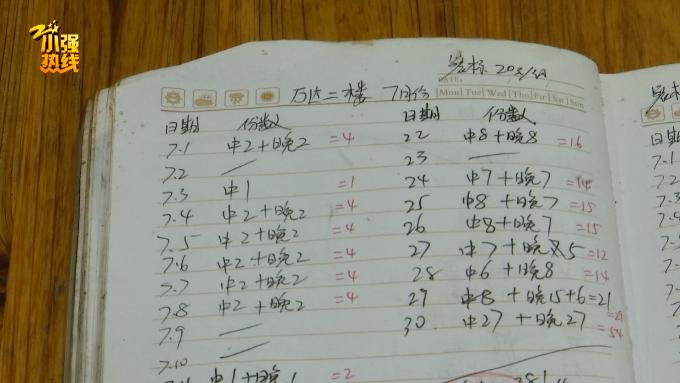 小强
热线
DATE:
万达二楼 7月份
Mon Tue Wed Thu Fri Sat Sun
日期 份数
7.1 中2+晚2 =4
7.2 —
7.3 中1 =1
7.4 中2+晚2 =4
7.5 中2+晚2 =4
7.6 中2+晚2 =4
7.7 中2+晚2 =4
7.8 中2+晚2 =4
7.9 —
7.10 —
中1+晚1 =2
日期 份数
22 中8+晚8 =16
23 —
24 中7+晚7 =14
25 中8+晚7 =15
26 中8+晚7 =15
27 中7+晚5 =12
28 中6+晚8 =14
29 中8+晚15+6=21
=29
30. 中27+晚27 =54
日期
7.1
7.2
7.3
7.4